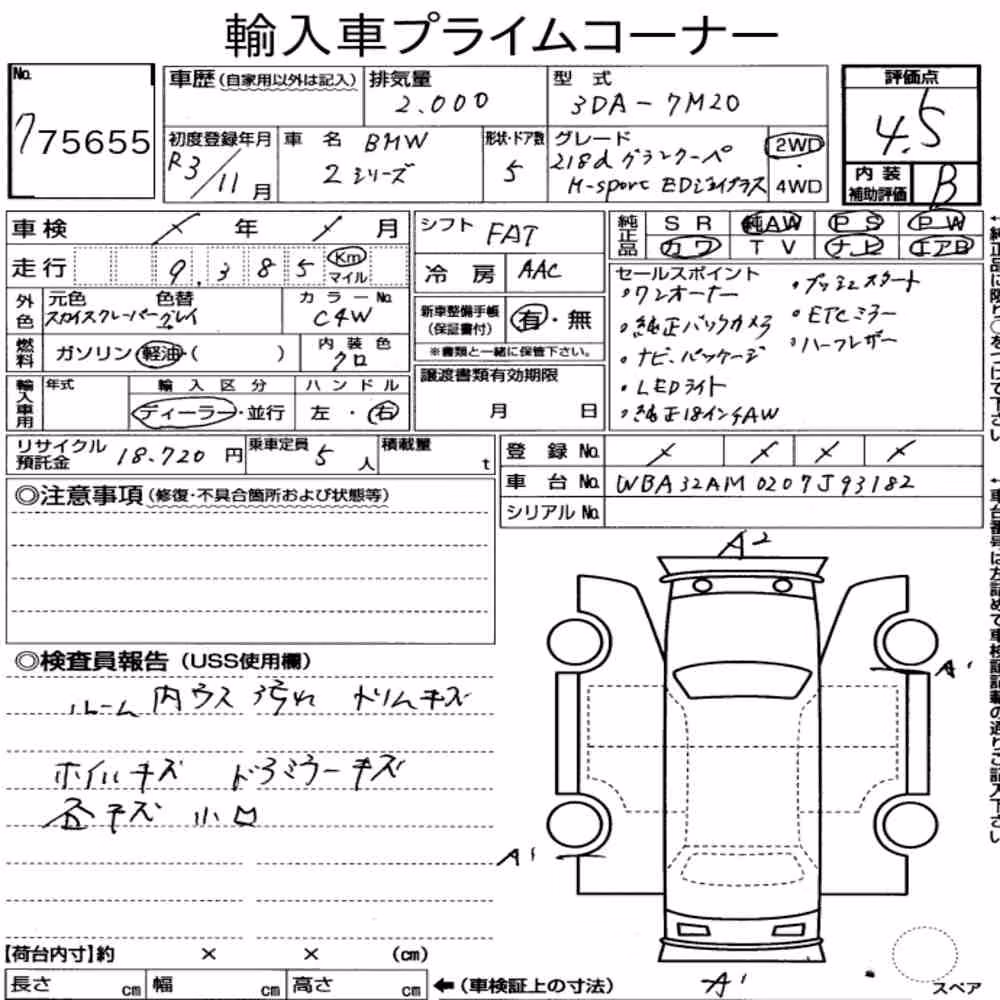 輸入車プライムコーナー
No.
775655
車歴(自家用以外は記入)
排気量
2.000
型式
3DA-7M20
評価点
4.5
初度登録年月
R3/11月
車名 BMW
2シリーズ
形状・ドア数
5
グレード
218d グランクーペ
M-sport EDジョイプラス
2WD
・
4WD
内装
補助評価
B
車検 × 年 × 月
シフト FAT
純正品
SR 純AW PS PW
カワ TV ナビ エアB
走行 9.385 Km
マイル
冷房 AAC
セールスポイント
・ワンオーナー
・純正バックカメラ
・ナビ.パッケージ
・LEDライト
・純正18インチAW
・プッシュスタート
・ETCミラー
・ハーフレザー
外色
元色 色替
スカイスクレーパーグレイ
カラーNo.
C4W
新車整備手帳
(保証書付)
有・無
※書類と一緒に保管下さい。
燃料
ガソリン・軽油・( )
内装色
クロ
譲渡書類有効期限
月 日
輸入車用
年式
輸入区分
ディーラー・並行
ハンドル
左・右
リサイクル
預託金
18.720円
乗車定員
5人
積載量
t
登録No. × × × ×
車台No. WBA32AM0207J93182
シリアルNo.
◎注意事項(修復・不具合箇所および状態等)
◎検査員報告(USS使用欄)
ルーム内ウス汚れ トリムキズ
ホイルキズ ドラミラーキズ
小
A2
A1
A1
A1
【荷台内寸】約 × × (cm)
長さ cm 幅 cm 高さ cm
←(車検証上の寸法)
スペア
←純正品に限り○をつけて下さい
←車台番号は左詰めで車検証記載の通りご記入下さい